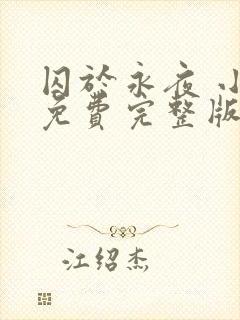 囚於永夜 小
免費完整版
江绍杰